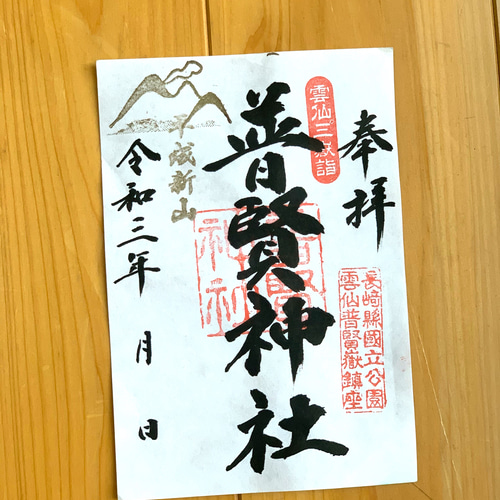 奉拝
長崎縣國立公園
雲仙普賢嶽鎮座
雲仙三嶽詣
普賢神社
平成新山
令和三年 月 日